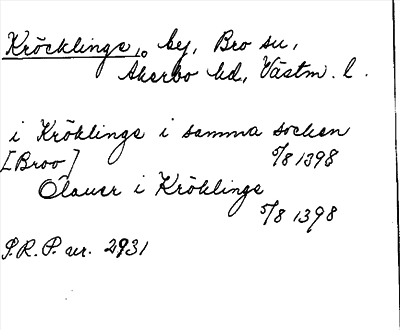 Kröcklinge, by, Bro sn,
Åkerbo hd, Västm. l.
i Kröklinge i samma socken
[Broo] 5/8 1398
Olauer i Kröklinge
5/8 1398
S.R.P. nr. 2931